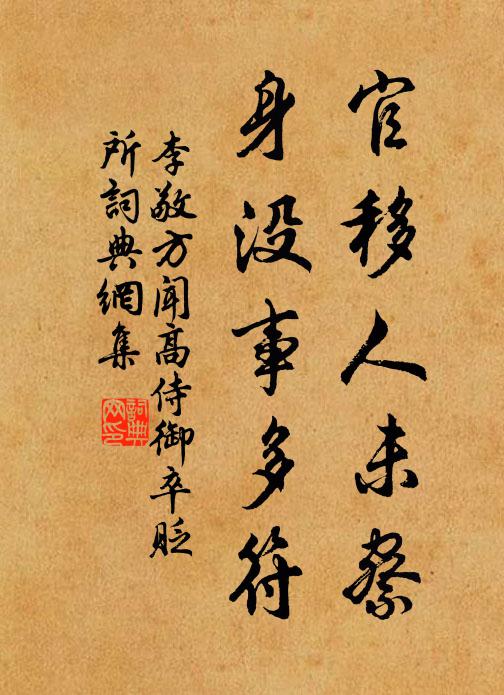 官移人未察
身没事多符
李敬方闻高侍御卒贬
所詞典網集
詞典
网印